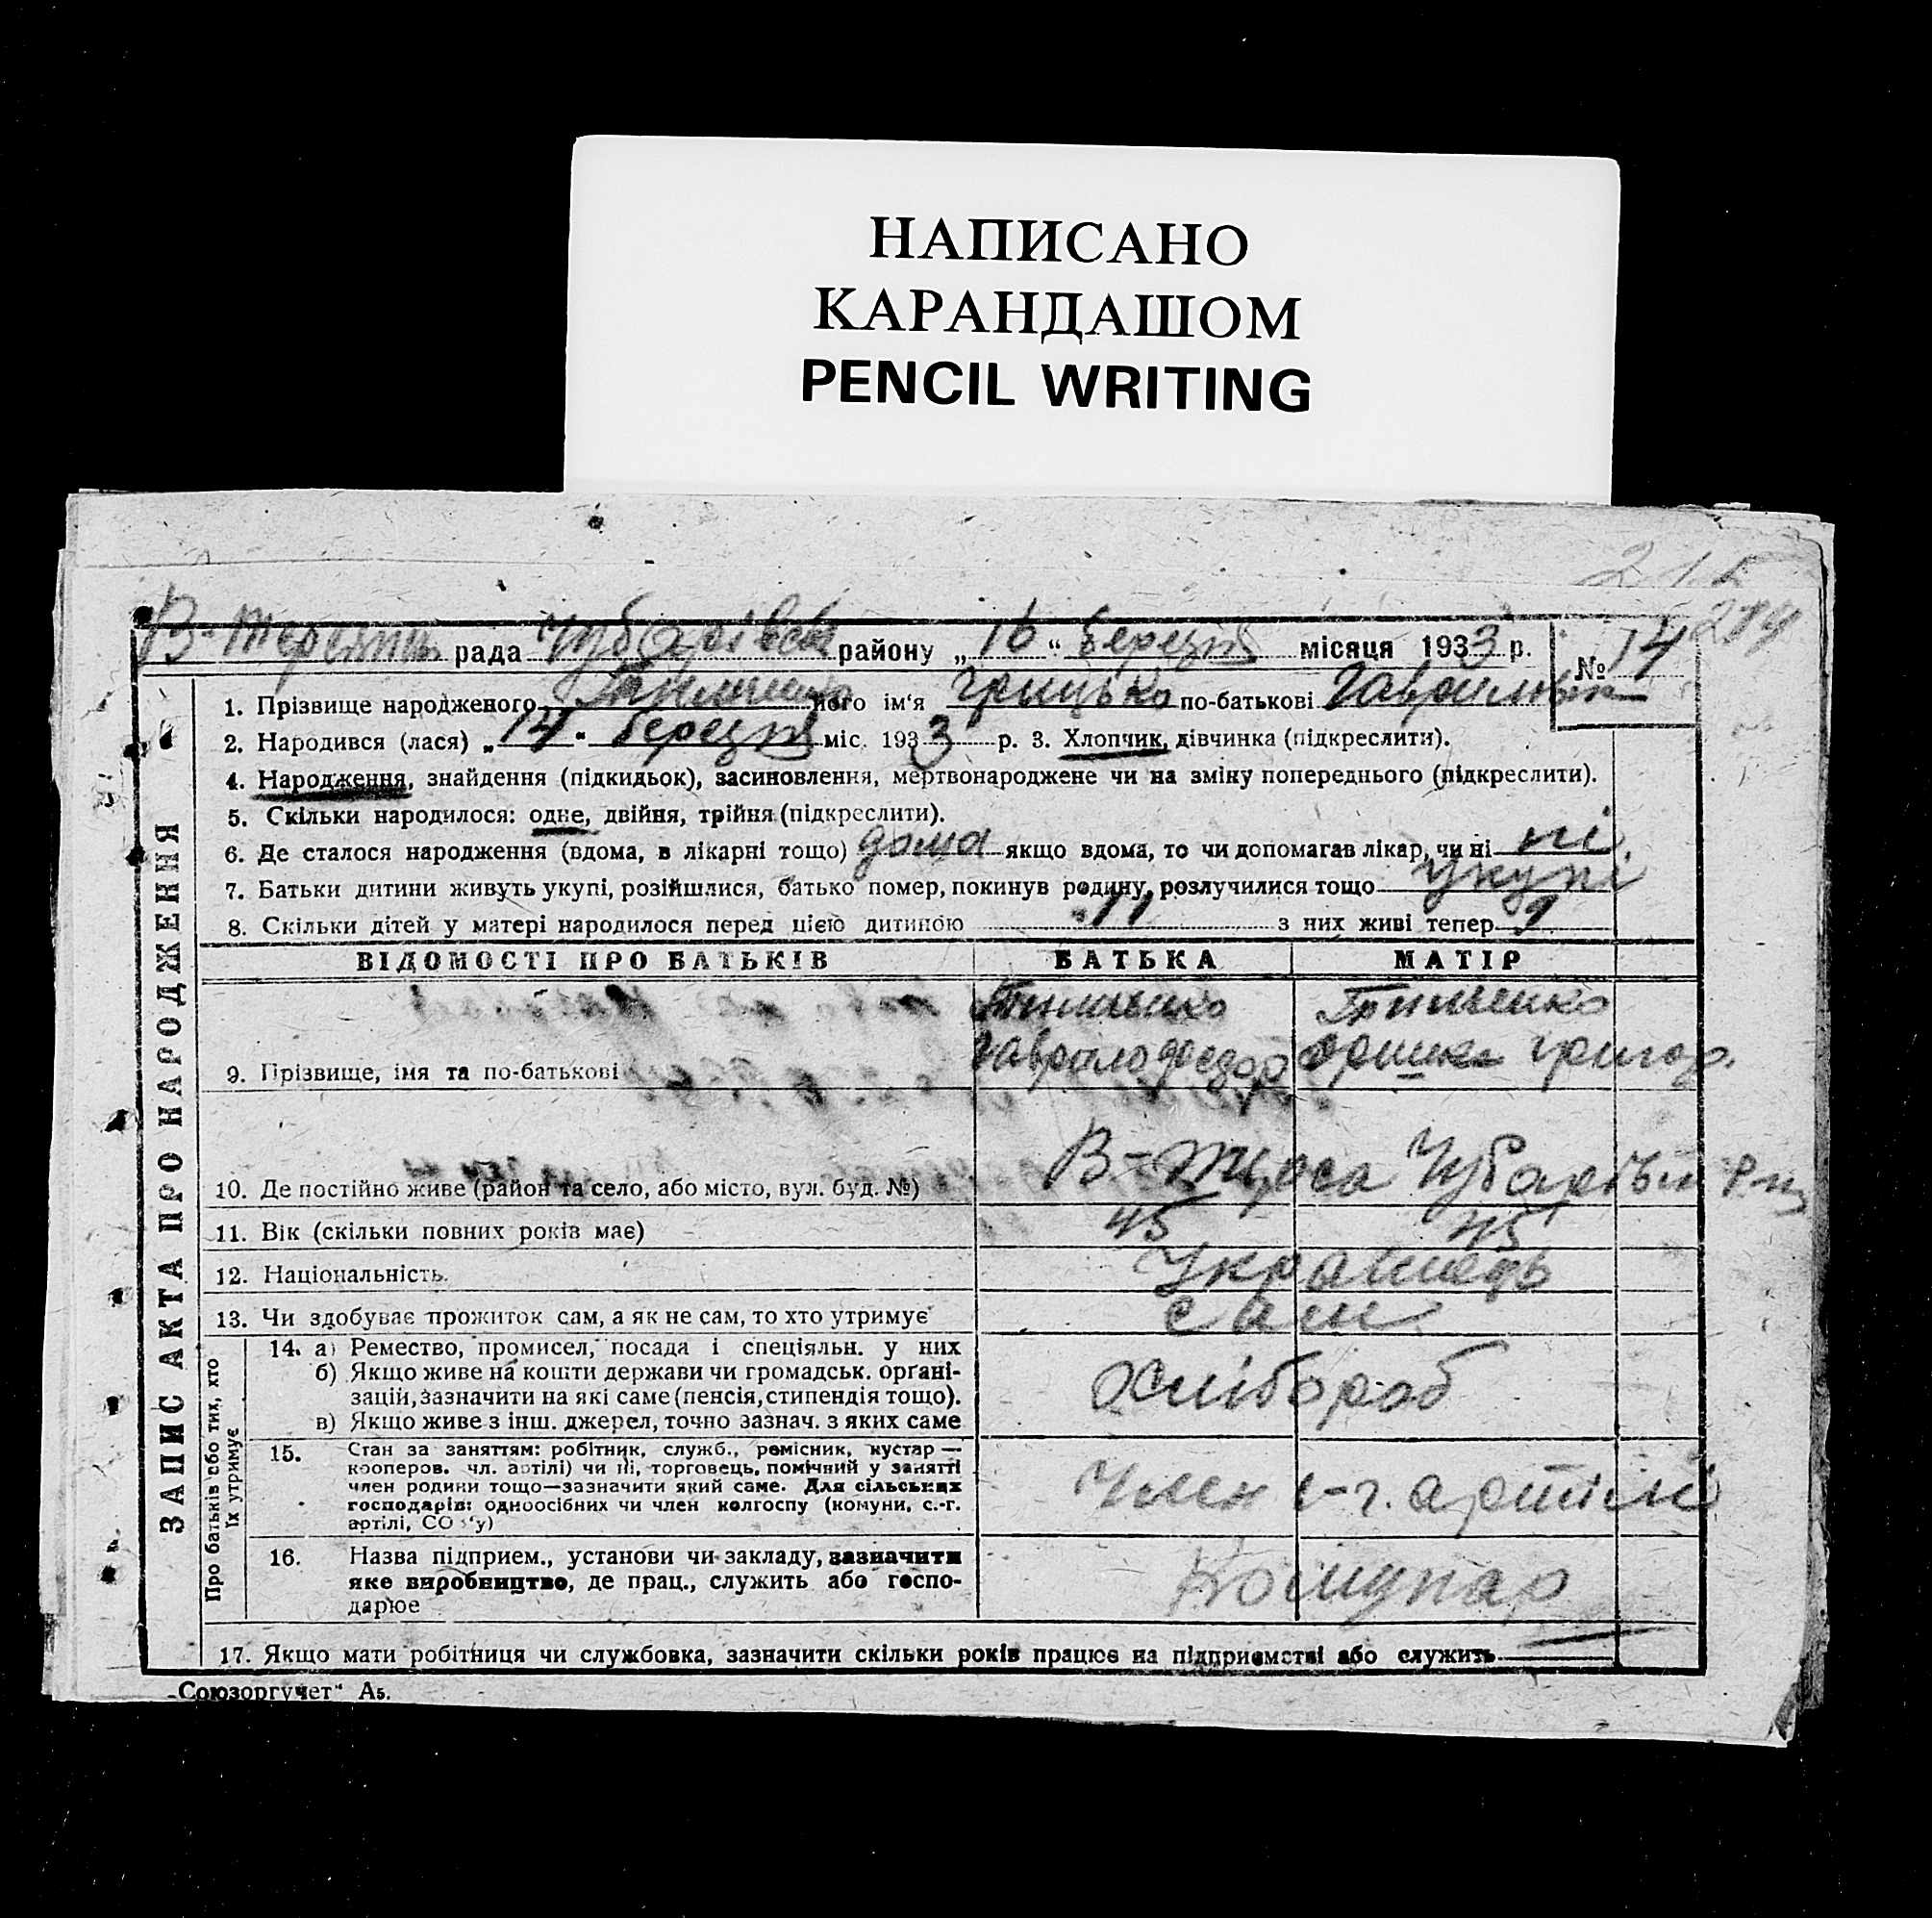 НАПИСАНО
КАРАНДАШОМ
PENCIL WRITING
215
274
рада Чубарівськ району „16“ березня місяця 1933 р. № 14
1. Прізвище народженого його ім‘я Грицько по-батькові Гаврилович
2. Народився (лася) „14“ березня міс. 1933 р. 3. Хлопчик, дівчинка (підкреслити).
4. Народження, знайдення (підкидьок), засиновлення, мертвонароджене чи на зміну попереднього (підкреслити).
5. Скільки народилося: одне, двійня, трійня (підкреслити).
6. Де сталося народження (вдома, в лікарні тощо) дома якщо вдома, то чи допомагав лікар, чи ні ні.
7. Батьки дитини живуть укупі, розійшлися, батько помер, покинув родину, розлучилися тощо укупі
8. Скільки дітей у матері народилося перед цією дитиною 11 з них живі тепер 9
ВІДОМОСТІ ПРО БАТЬКІВ БАТЬКА МАТІР
9. Прізвище, імя та по-батькові
Гаврило Федор Оришка Григор.
10. Де постійно живе (район та село, або місто, вул. буд. №)
11. Вік (скільки повних років має) 45 45
12. Національність. Українець
13. Чи здобуває прожиток сам, а як не сам, то хто утримує сам
14. а) Ремество, промисел, посада і спеціяльн. у них
б) Якщо живе на кошти держави чи громадськ. орґані-
зацій, зазначити на які саме (пенсія, стипендія тощо).
в) Якщо живе з інш. джерел, точно зазнач. з яких саме
Хлібороб
15. Стан за заняттям: робітник, служб., ремісник, кустар —
кооперов. чл. артілі) чи ні, торговець, помічний у занятті
член родини тощо—зазначити який саме. Для сільських
господарів: одноосібних чи член колгоспу (комуни, с.-г.
артілі, СО у)
Член с-г. артілі
16. Назва підприєм., установи чи закладу, зазначити
яке виробництво, де прац., служить або госпо-
дарює
Комунар
17. Якщо мати робітниця чи службовка, зазначити скільки років працює на підприємстві або служить
ЗАПИС АКТА ПРО НАРОДЖЕННЯ
Про батьків або тих, хто
їх утримує
„Союзоргучет“ А5.